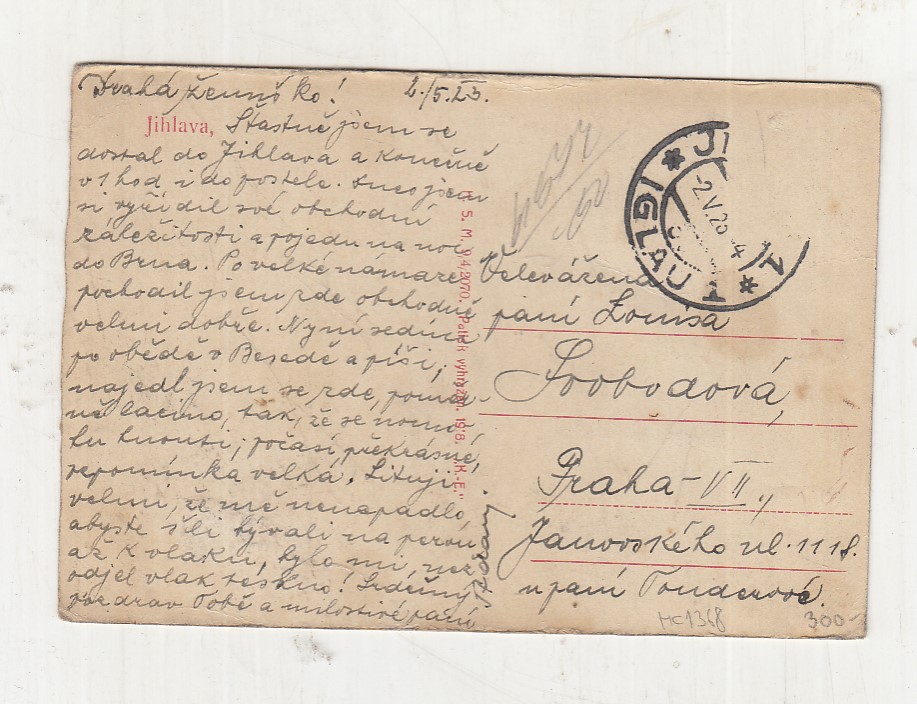 Drahá ženuško! 2./5.23.
Jihlava, Šťastně jsem se
dostal do Jihlava a konečně
v 1 hod i do postele. Dnes jsem
si vyřídil své obchodní
záležitosti a pojedu na noc
do Brna. Po velké námaze
pochodil jsem zde obchodně
velmi dobře. Nyní sedím
po obědě v Besedě a píši,
najedl jsem se zde, pomě-
ně lacino, tak, že se nemo-
hu hnouti; počasí překrásné,
vzpomínka velká. Lituji
velmi, že mě nenapadlo,
abyste šli bývali na peron
až k vlaku, bylo mi, než
odjel vlak teskno! Srdečný
pozdrav Tobě a milostivé paní
Velevážená
paní Louisa
Svobodová,
Praha-VII.,
Janovského ul. 118.
u paní Tondrové.
5. M. 3/4. 2070. Patisk vyhrazen. 1918. "K.-E."
JI
* IGLAU *
-2.V.23
1
HC1368
300-